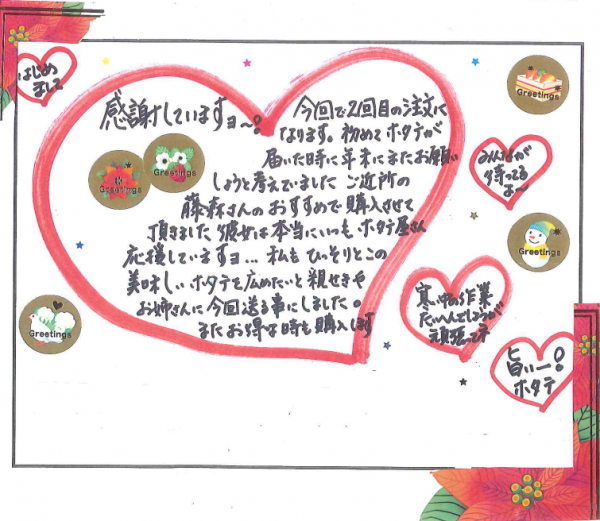 はじめ
まして
感謝していますヨ〜!
今回で2回目の注文に
なります。初めてホタテが
届いた時に年末にまたお願い
しようと考えていました ご近所の
藤森さんのおすすめで購入させて
頂きました 彼女は本当にいつも ホタテ屋さん
応援していますヨ… 私も ひっそりとこの
美味しい ホタテを広めたいと 親せきや
お姉さんに 今回送る事にしました。
またお得な時も購入します
Greetings
Greetings
Greetings
Greetings
Greetings
みんなが
待ってる
よ〜
寒い中の作業
たいへんでしょうが
頑張って下
旨い〜!
ホタテ